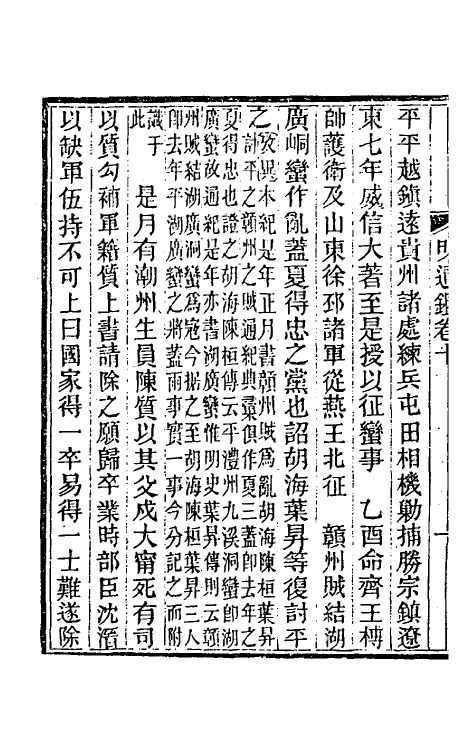 明通鑑卷十　一
平平越鎮遠貴州諸處練兵屯田相機勦捕勝宗鎮遼
東七年威信大著至是授以征蠻事　乙酉命齊王榑
帥護衛及山東徐邳諸軍從燕王北征　贛州賊結湖
廣峒蠻作亂蓋夏得忠之黨也詔胡海葉昇等復討平
之攷異本紀是年正月書贛州賊爲亂胡海陳桓葉昇
討平之贛州之賊攷典彙俱作夏三蓋卽去年之
夏得忠也證之胡海陳桓傳云平澧州九溪洞蠻卽湖
廣蠻故通紀是年亦書湖廣蠻惟明史葉昇傳則云贛
州賊結湖廣洞蠻爲寇今据之至胡海陳桓葉昇三人
卽去年平湖廣蠻之將蓋兩事實一事今分記之而附
識于
此　是月有潮州生員陳質以其父戍大甯死有司
以質勾補軍籍質上書請除之願歸卒業時部臣沈溍
以缺軍伍持不可上曰國家得一卒易得一士難遂除